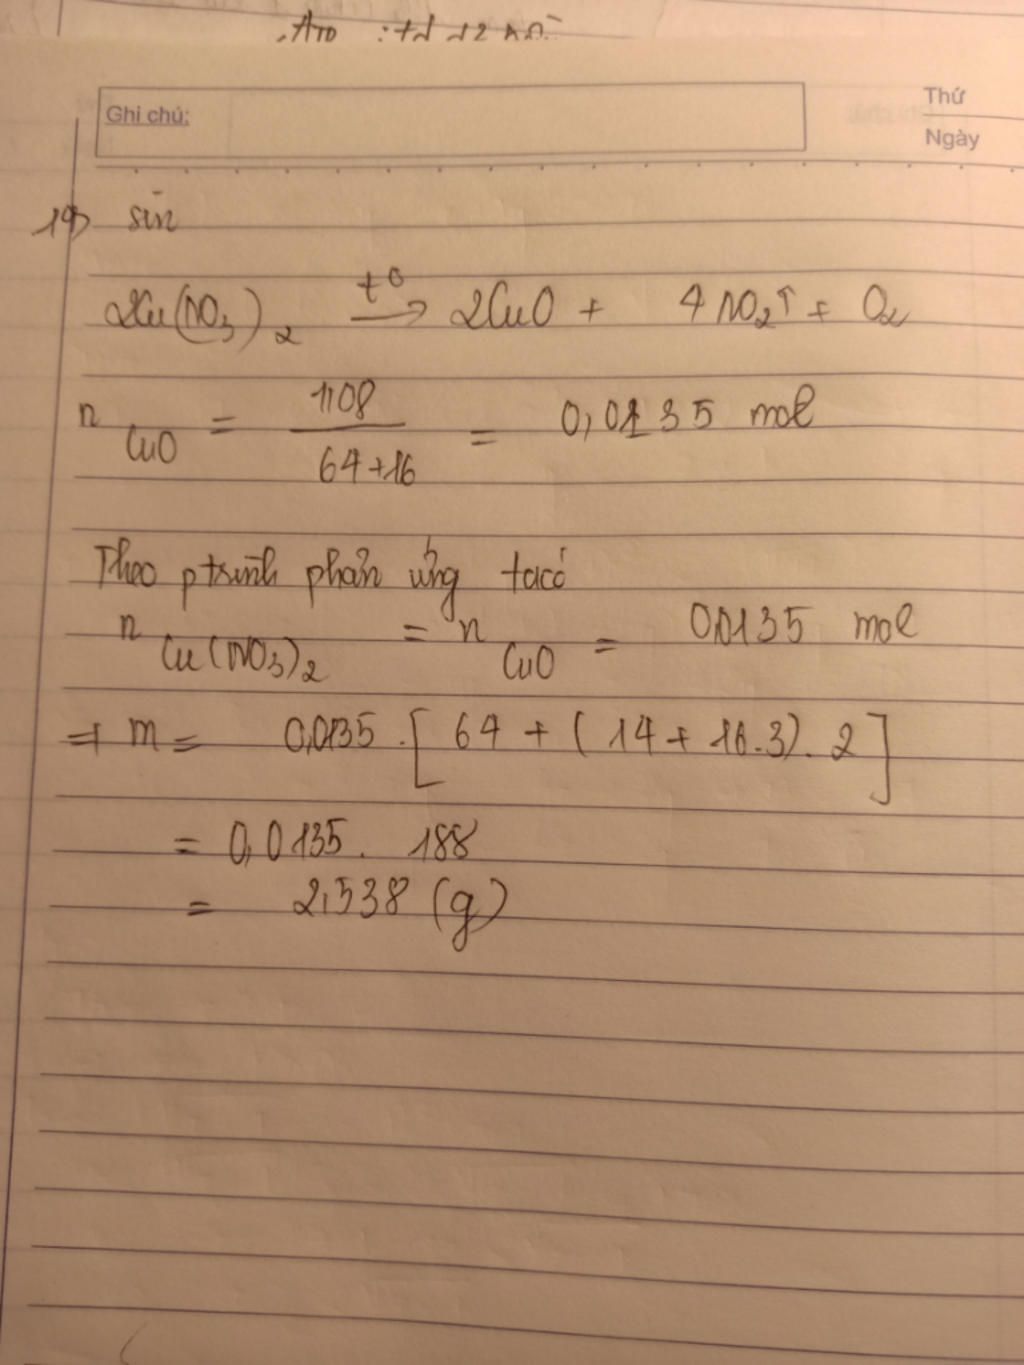 Ghi chú:
Thứ
Ngày
19)
2Cu(NO3)2 t° → 2CuO + 4NO2↑ + O2
nCuO = 1,08 / 64+16 = 0,0135 mol
Theo ptrình phản ứng ta có
nCu(NO3)2 = nCuO = 0,0135 mol
⇒ m = 0,0135 . [64 + (14 + 16.3). 2]
= 0,0135. 188
= 2,538 (g)